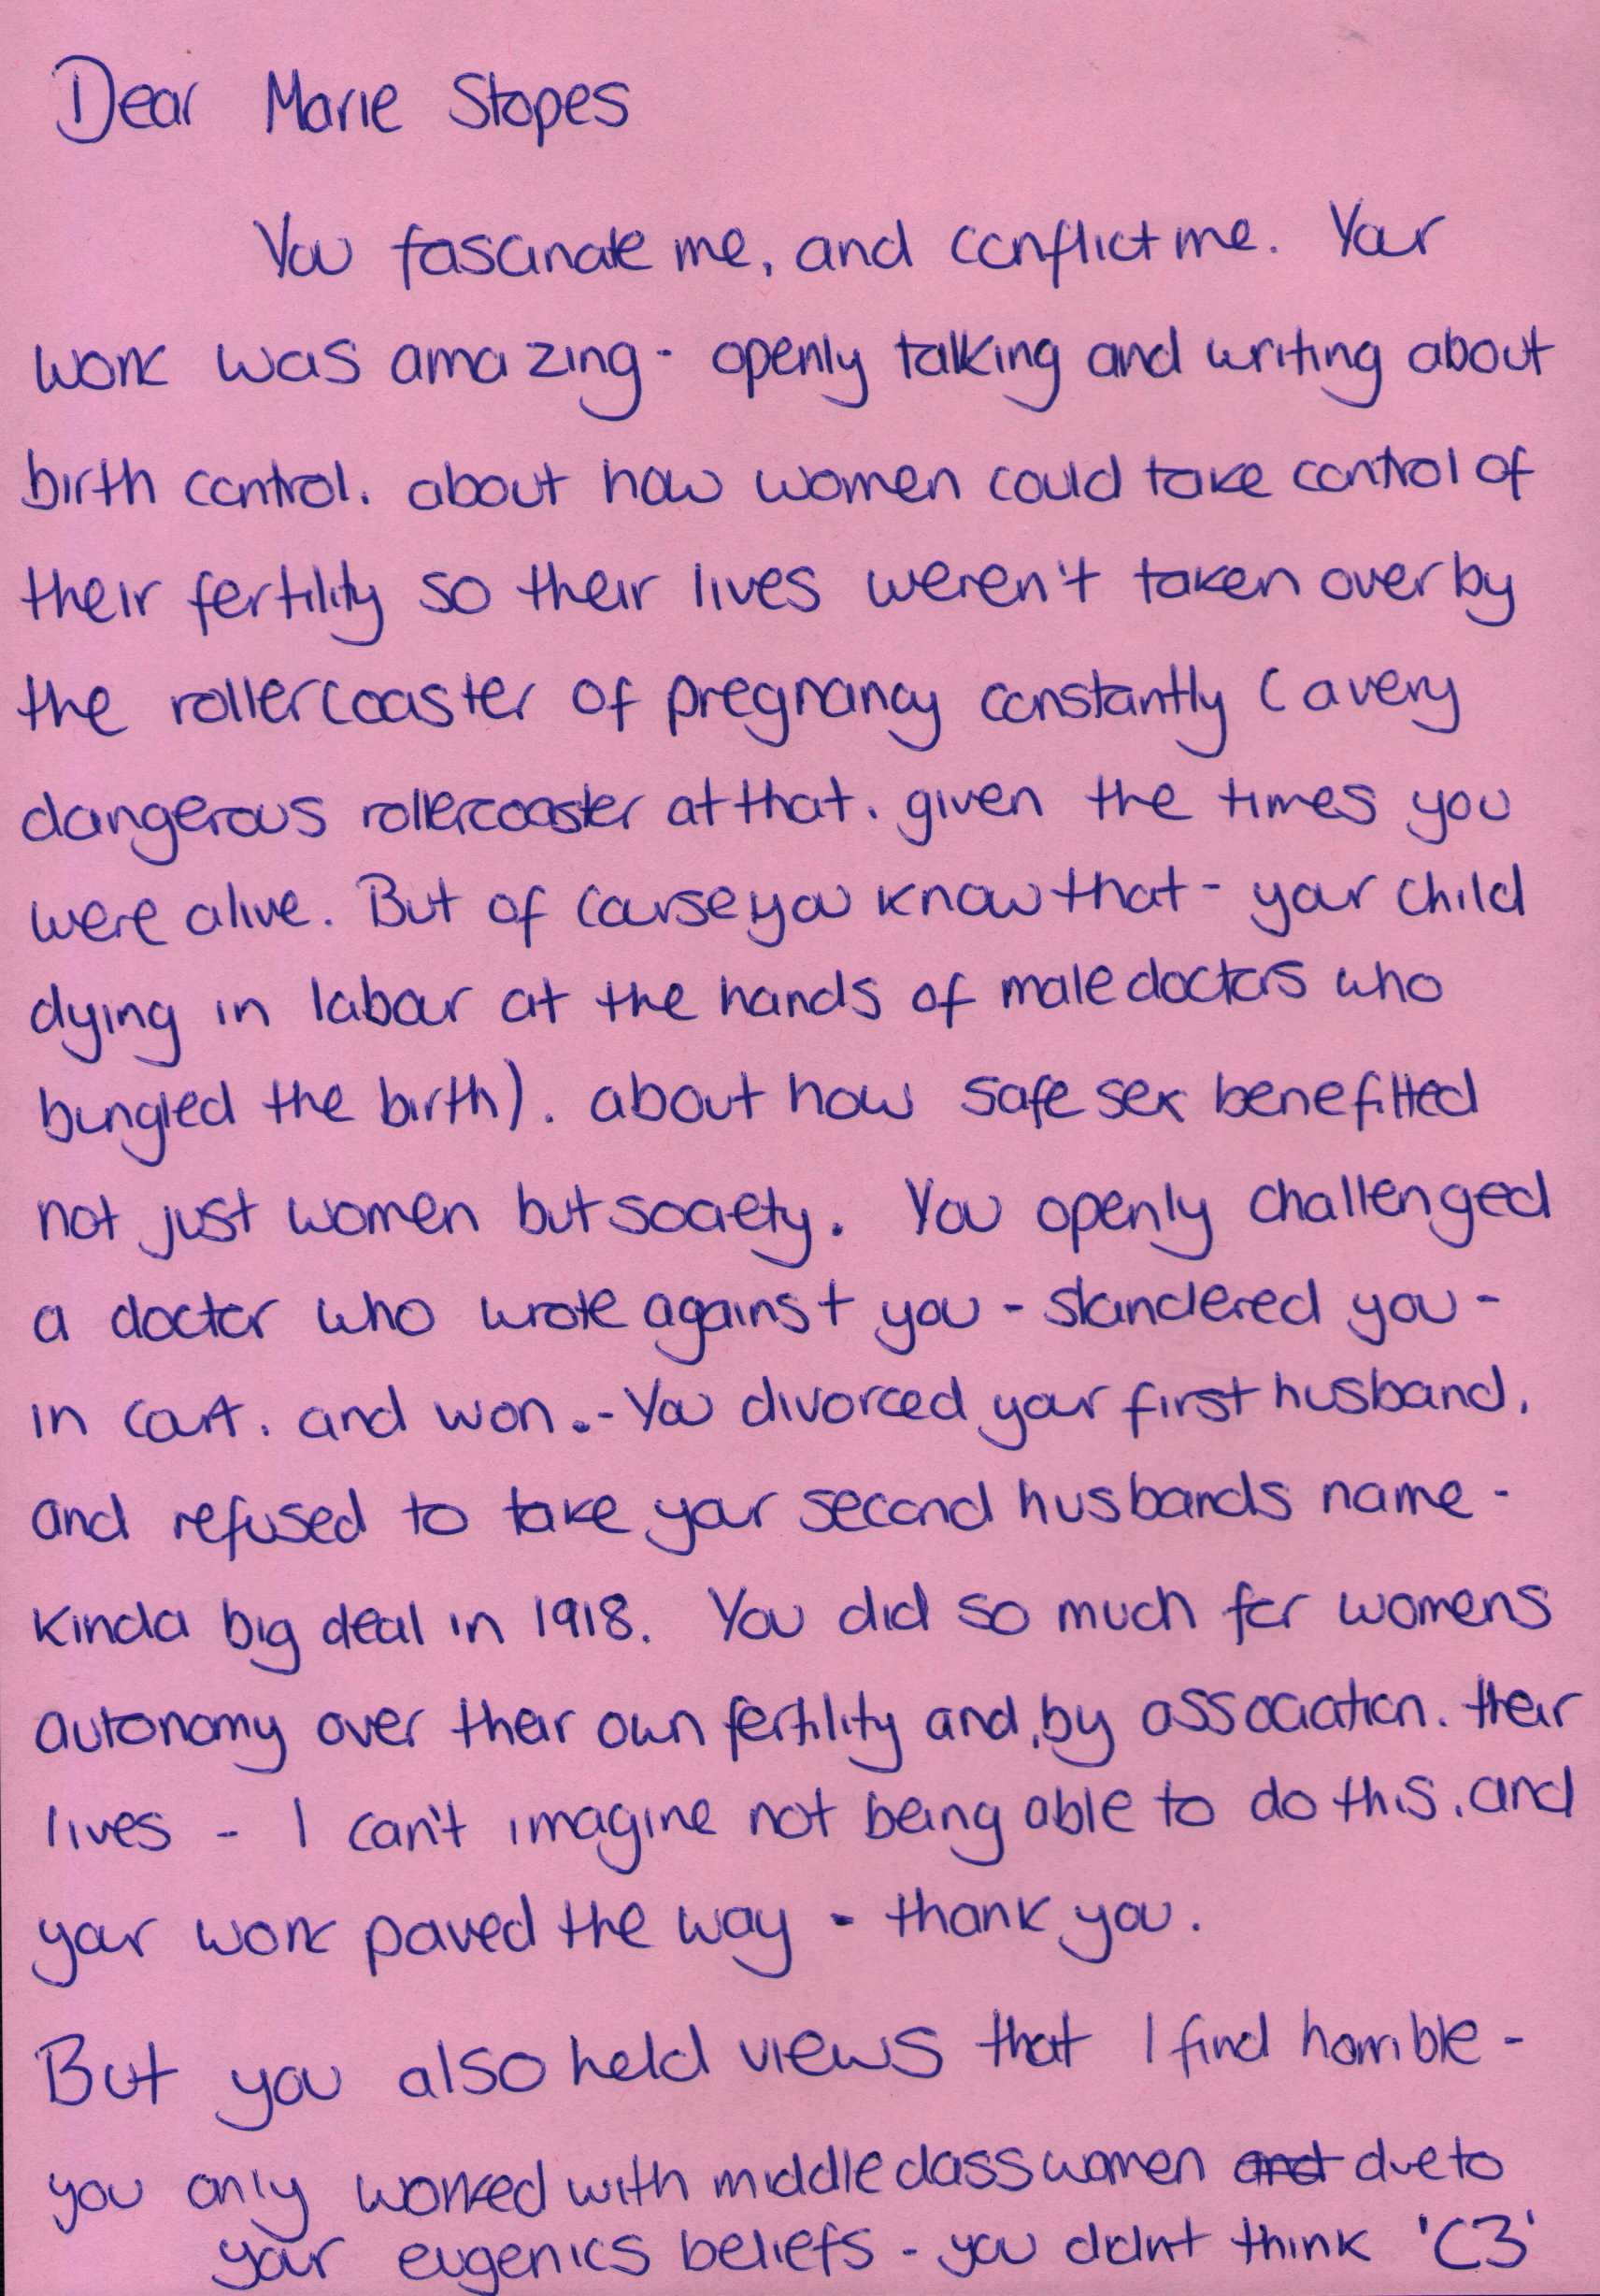 Dear Marie Stopes
You fascinate me, and conflict me. Your
work was amazing - openly talking and writing about
birth control. about how women could take control of
their fertility so their lives weren't taken over by
the rollercoaster of pregnancy constantly (a very
dangerous rollercoaster at that. given the times you
were alive. But of course you know that - your child
dying in labour at the hands of male doctors who
bungled the birth). about how safe sex benefitted
not just women but society. You openly challenged
a doctor who wrote against you - slandered you -
in court. and won. - You divorced your first husband,
and refused to take your second husbands name -
kinda big deal in 1918. You did so much for womens
autonomy over their own fertility and, by association. their
lives - I can't imagine not being able to do this, and
your work paved the way - thank you.
But you also held views that I find horrible -
you only worked with middle class women and due to
your eugenics beliefs - you didn't think 'C3'